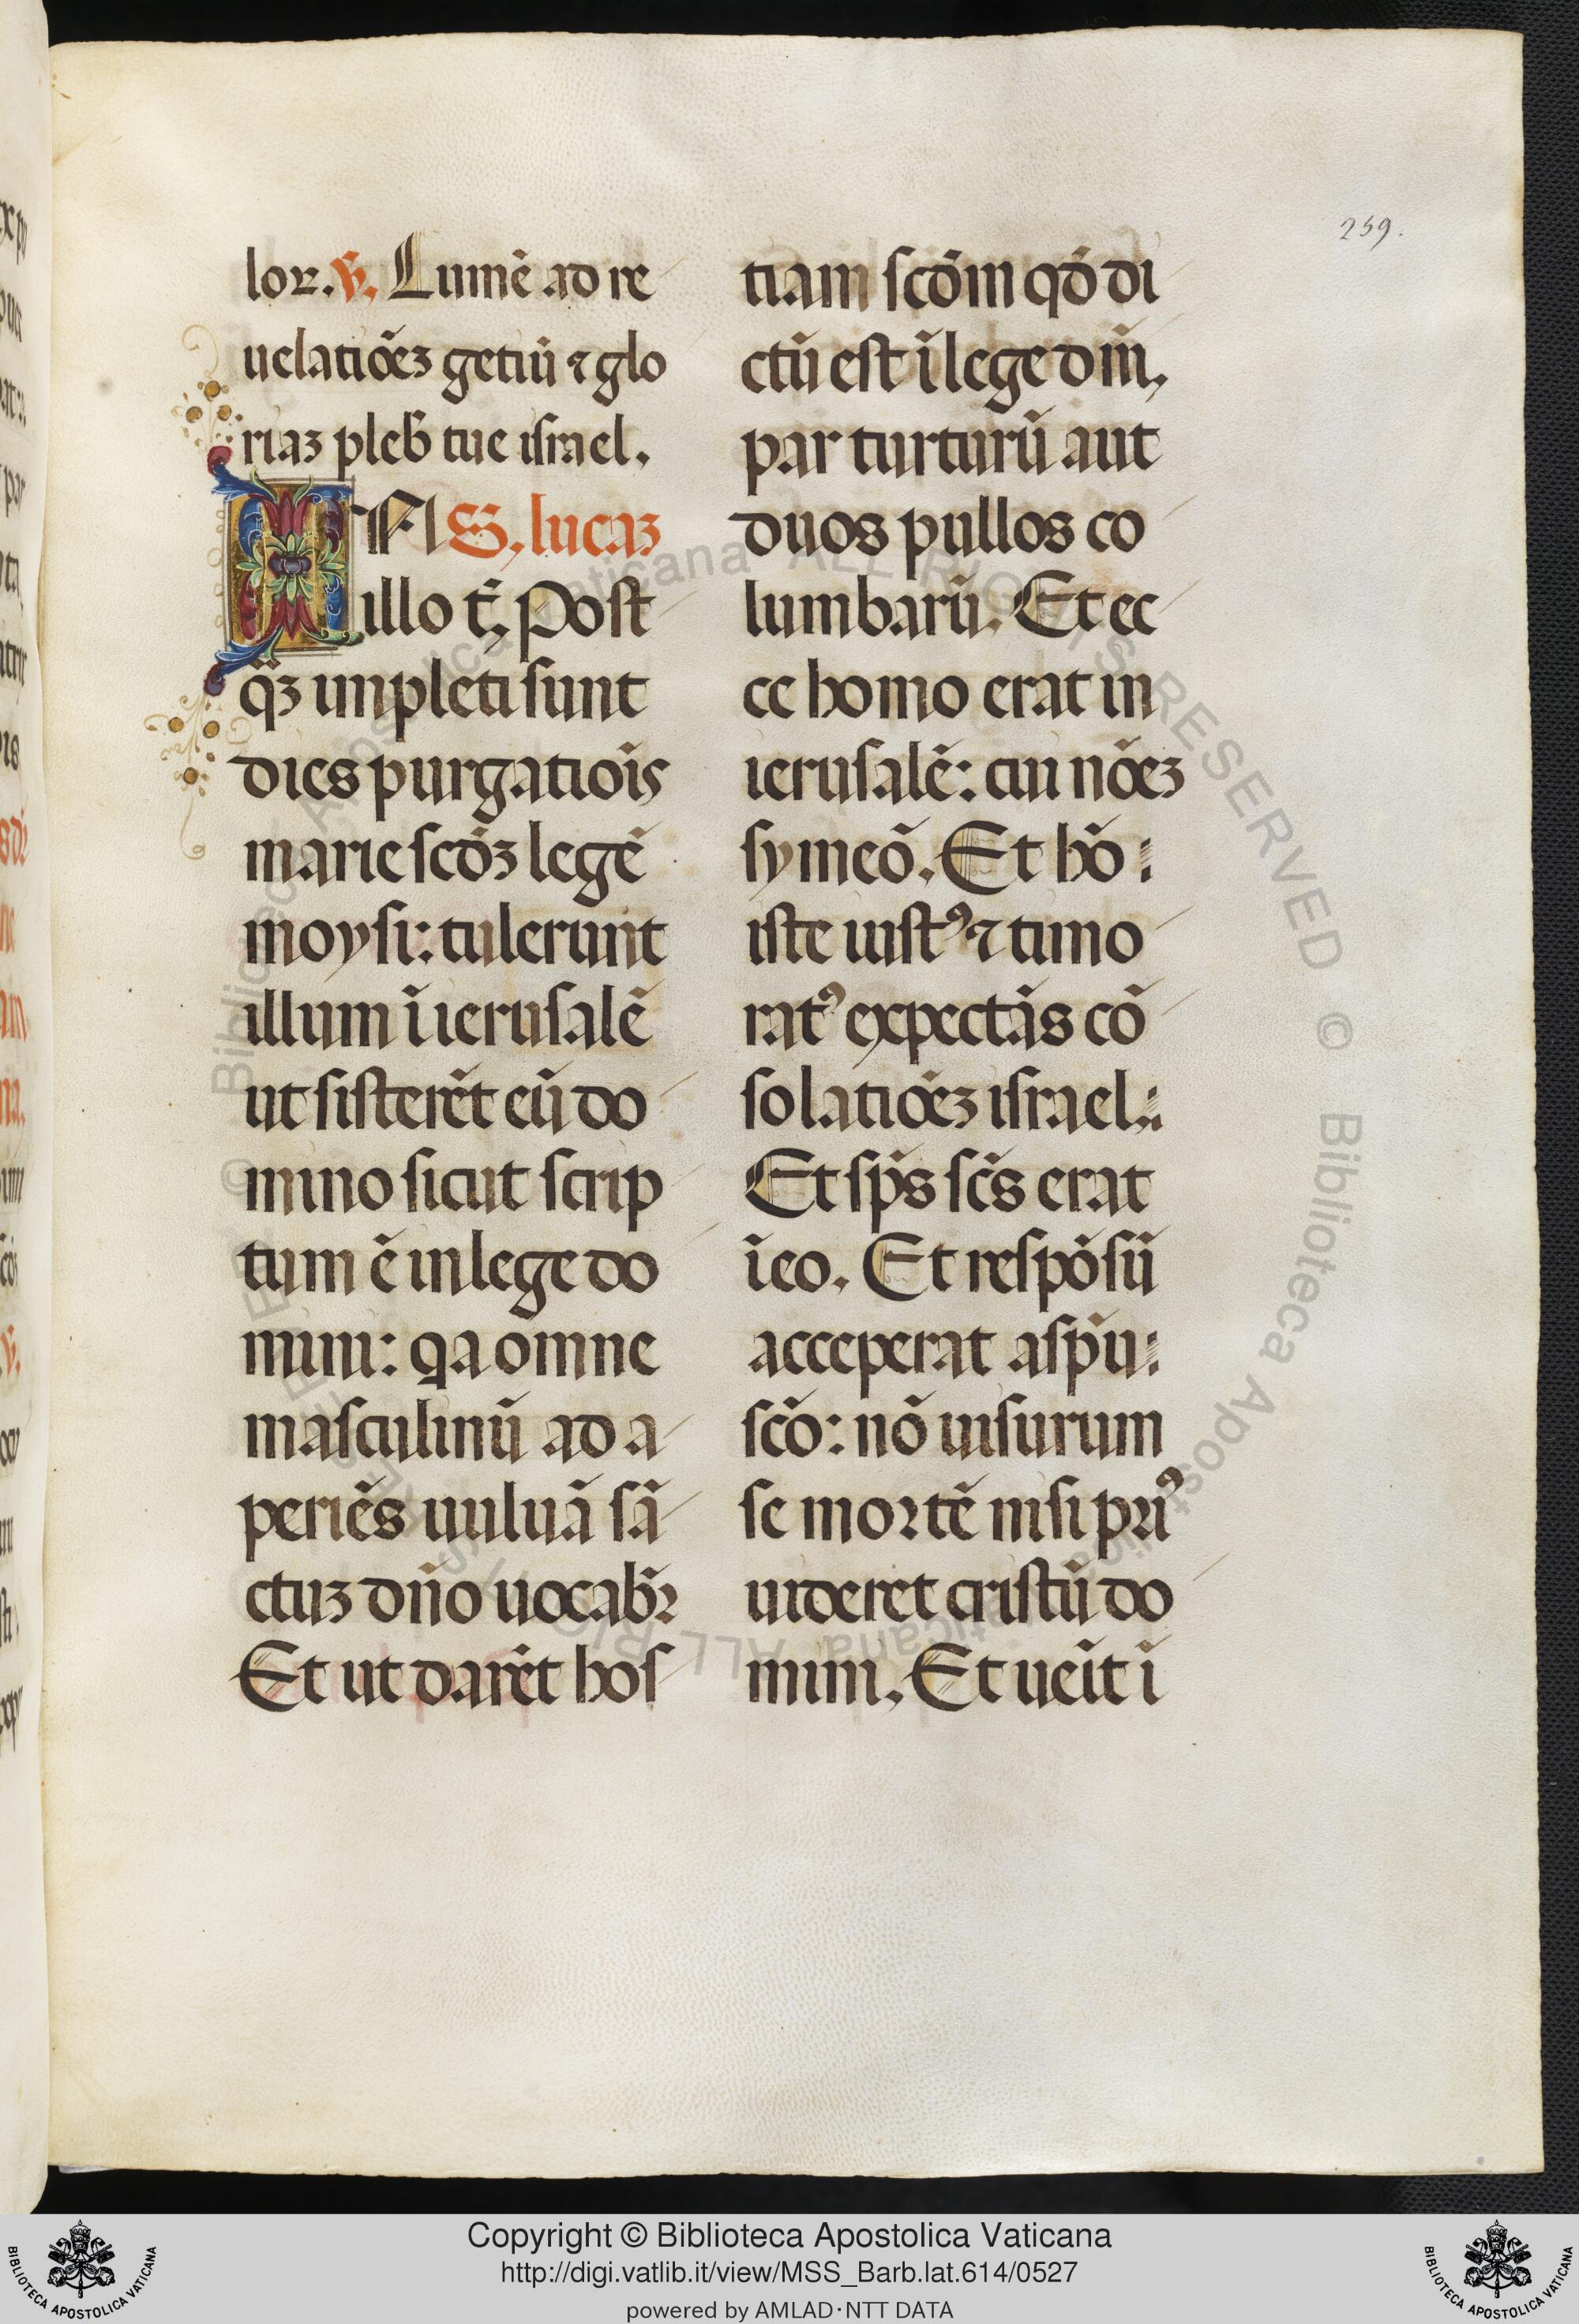 259.
lor. ℣. Lumē ad re
uelatiōez getiū ⁊ glo
riaz pleb̄ tue israel.
IN S. lucaz
illo t̄. Post
q̄z impleti sunt
dies purgatiōis
marie scd̄z legē
moysi: tulerunt
illum ī ierusalē
ut sisterēt eū do
mino sicut scrip
tum ē in lege do
mini: qa omne
masculinū ad a
periēs uuluā sā
ctuz dn̄o uocabr̄
Et ut darēt hos
tiam scd̄m qd̄ di
ctū est ī lege dn̄i,
par turturū aut
duos pullos co
lumbarū. Et ec
ce homo erat in
ierusalē: cui nōez
symeō. Et hō
iste iustꝰ ⁊ timo
ratꝰ expectās cō
solatiōez israel.
Et sp̄s sc̄s erat
ī eo. Et respōsū
acceperat a sp̄u
sc̄o: nō uisurum
se mortē nisi priꝰ
uideret cristū do
mini. Et ueīt ī
Copyright © Biblioteca Apostolica Vaticana
http://digi.vatlib.it/view/MSS_Barb.lat.614/0527
powered by AMLAD·NTT DATA